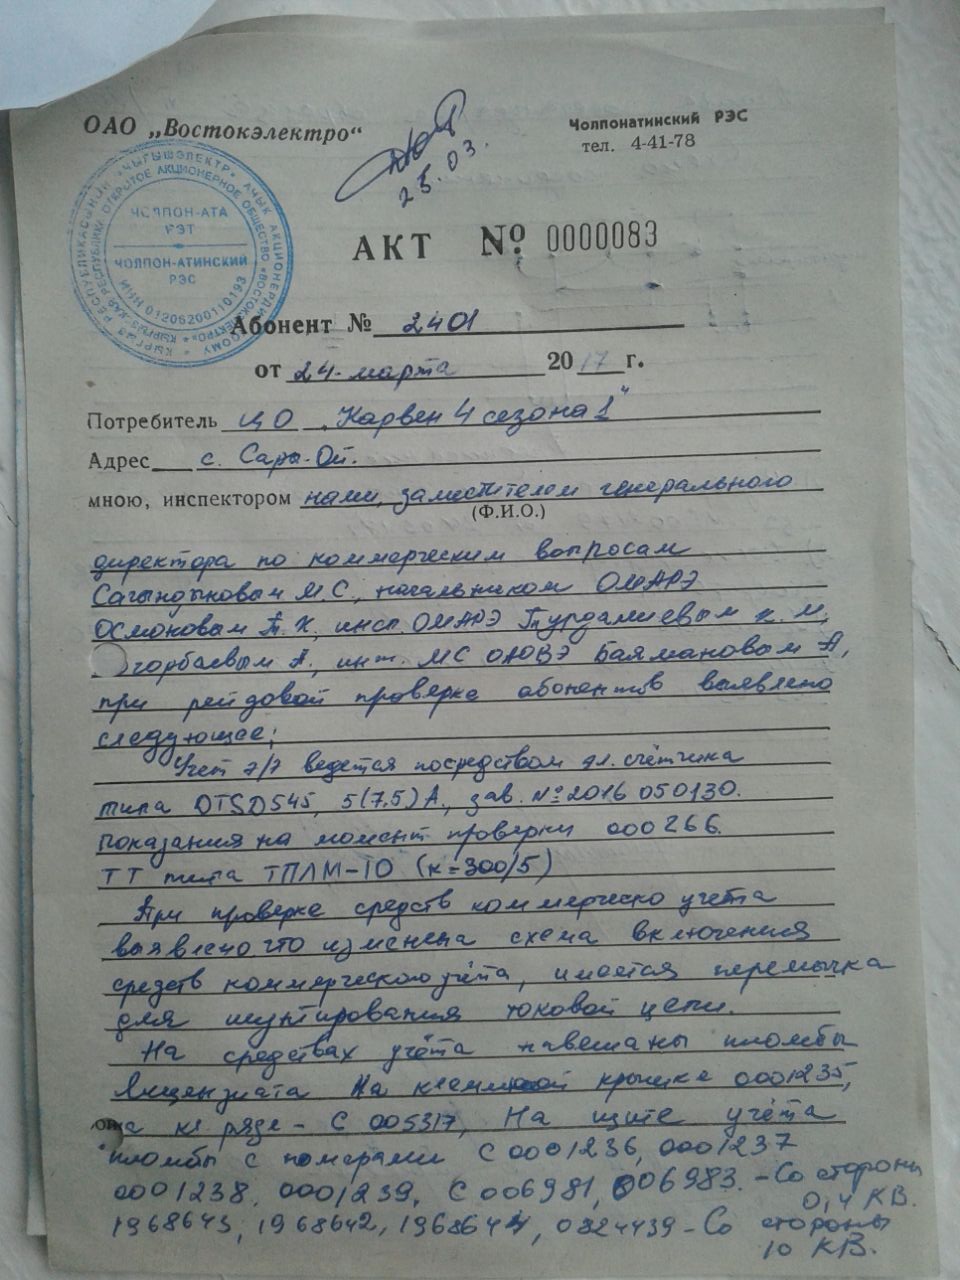 ОАО „Востокэлектро“
Чолпонатинский РЭС
тел. 4-41-78
25.03.
ЧОЛПОН-АТА
РЭТ
ЧОЛПОН-АТИНСКИЙ
РЭС
ИНН 01206200110193
АКТ № 0000083
Абонент № 2401
от 24 марта 2017 г.
Потребитель ЦО „Карвен 4 сезона 1"
Адрес с. Сары-Ой.
мною, инспектором нами, заместителем генерального
(Ф.И.О.)
директора по коммерческим вопросам
Сагындыковым М.С., начальником ОМАРЭ
Осмоновым Т.К, инсп. ОМАРЭ Турдалиевым К.М,
А., инж. МС Баямановым А,
при рейдовой проверке абонентов выявлено
следующее;
Учет э/э ведется посредством эл. счётчика
типа DTSD545, 5(7,5)А, зав. №2016 050130.
Показания на момент проверки 000266.
ТТ типа ТПЛМ-10 (к=300/5)
При проверке средств коммерческо учета
выявлено что изменена схема включения
средств коммерческого учёта, имеется перемычка
для шунтирования токовой цепи.
На средствах учёта навешаны пломбы
Лицензиата На клеммной крышке 0001235,
на кл ряде - С 005317, На щите учёта
пломбы с номерами С 0001236, 0001237
0001238, 0001239, С 006981, 006983. - Со стороны
0,4 КВ.
1968643, 1968642, 1968644, 0324439 - Со стороны
10 КВ.